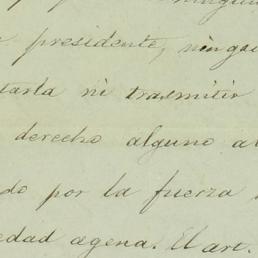 presidente, ningu
tarla ni trasmitir
derecho alguno a
do por la fuerza
edad agena. El art.